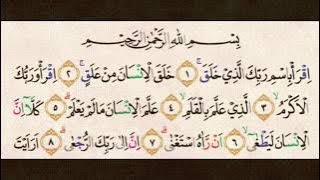 بِسْمِ اللهِ الرَّحْمٰنِ الرَّحِيْمِ
اِقْرَأْ بِاسْمِ رَبِّكَ الَّذِيْ خَلَقَۚ ١ خَلَقَ الْاِنْسَانَ مِنْ عَلَقٍۚ ٢ اِقْرَأْ وَرَبُّكَ
الْاَكْرَمُۙ ٣ الَّذِيْ عَلَّمَ بِالْقَلَمِۙ ٤ عَلَّمَ الْاِنْسَانَ مَا لَمْ يَعْلَمْۗ ٥ كَلَّآ اِنَّ
الْاِنْسَانَ لَيَطْغٰىٓۙ ٦ اَنْ رَّاٰهُ اسْتَغْنٰىۗ ٧ اِنَّ اِلٰى رَبِّكَ الرُّجْعٰىۗ ٨ اَرَاَيْتَ